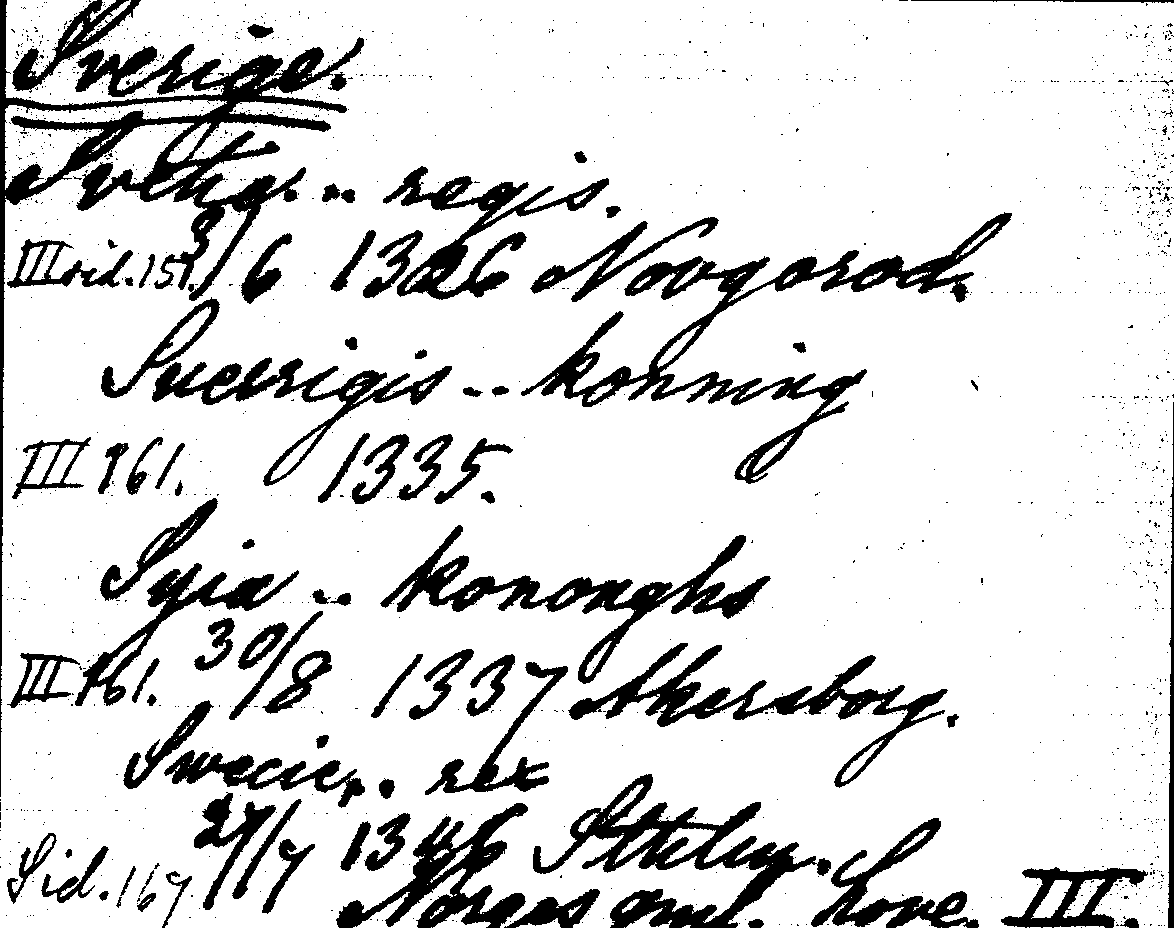 Sverige.
Svetia. .. regis.
III sid. 151. 3/6 1326 Novgorod.
Sverrigis .. konning
III 161. 1335.
Syia .. kononghs
III 161. 30/8 1337 Akersborg.
Swecie, .. rex
Sid. 167 27/7 1346 Sthlm.
Norges gml. Love. III.